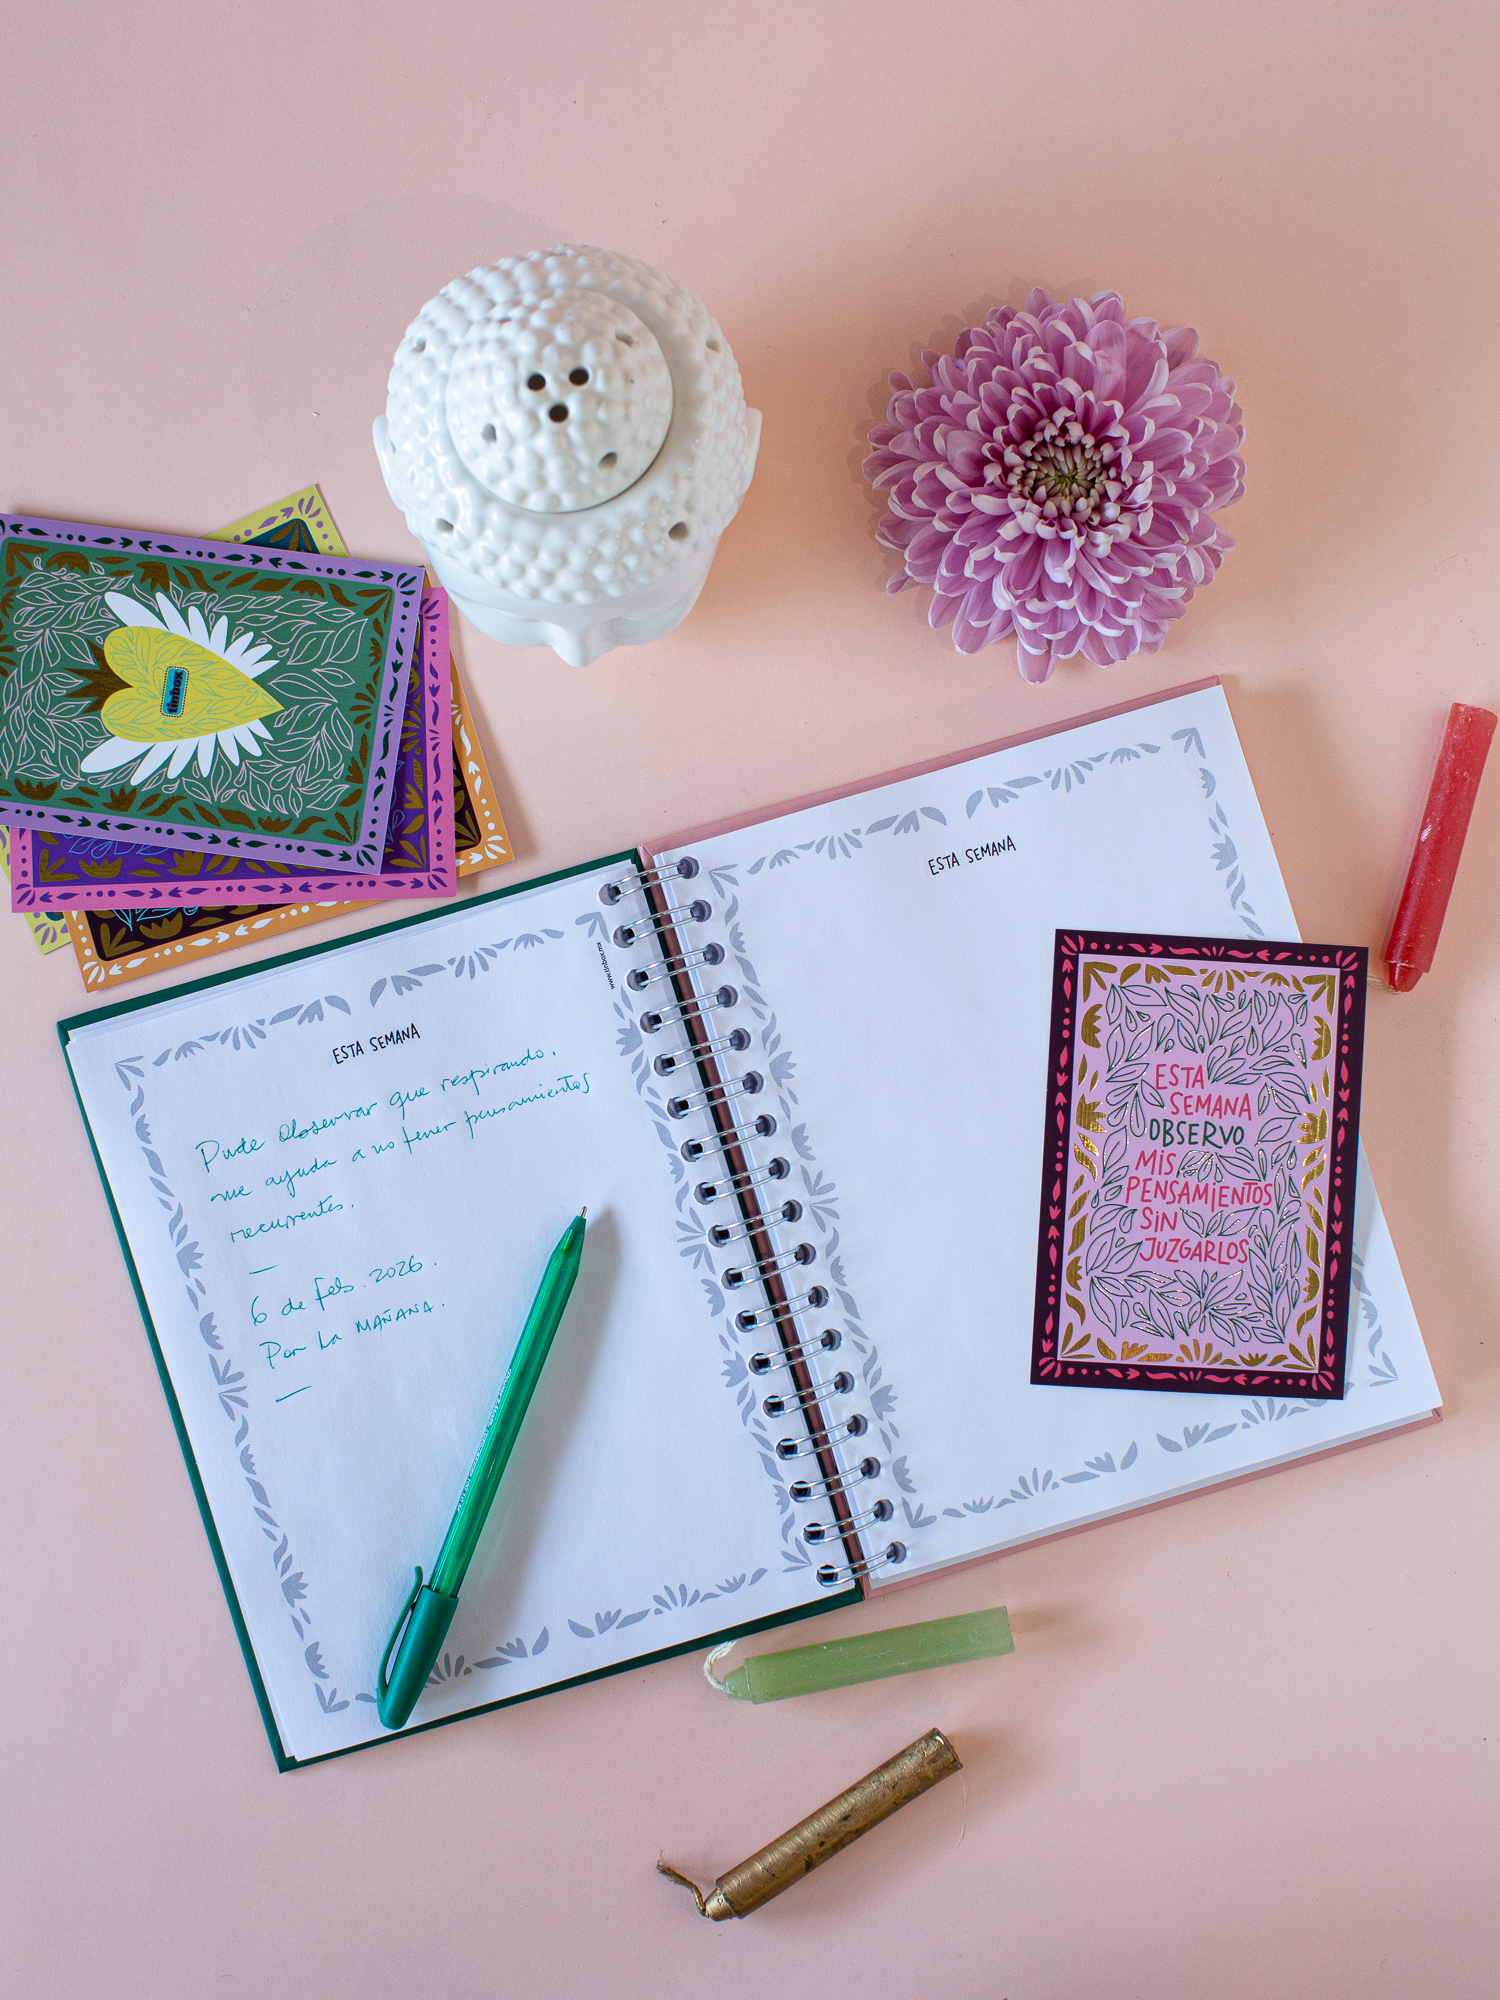 tinbox
www.tinbox.mx
ESTA SEMANA
Pude observar que respirando,
me ayuda a no tener pensamientos
recurrentes.
—
6 de feb. 2026.
Por la MAÑANA.
—
ESTA SEMANA
ESTA
SEMANA
OBSERVO
MIS
PENSAMIENTOS
SIN
JUZGARLOS